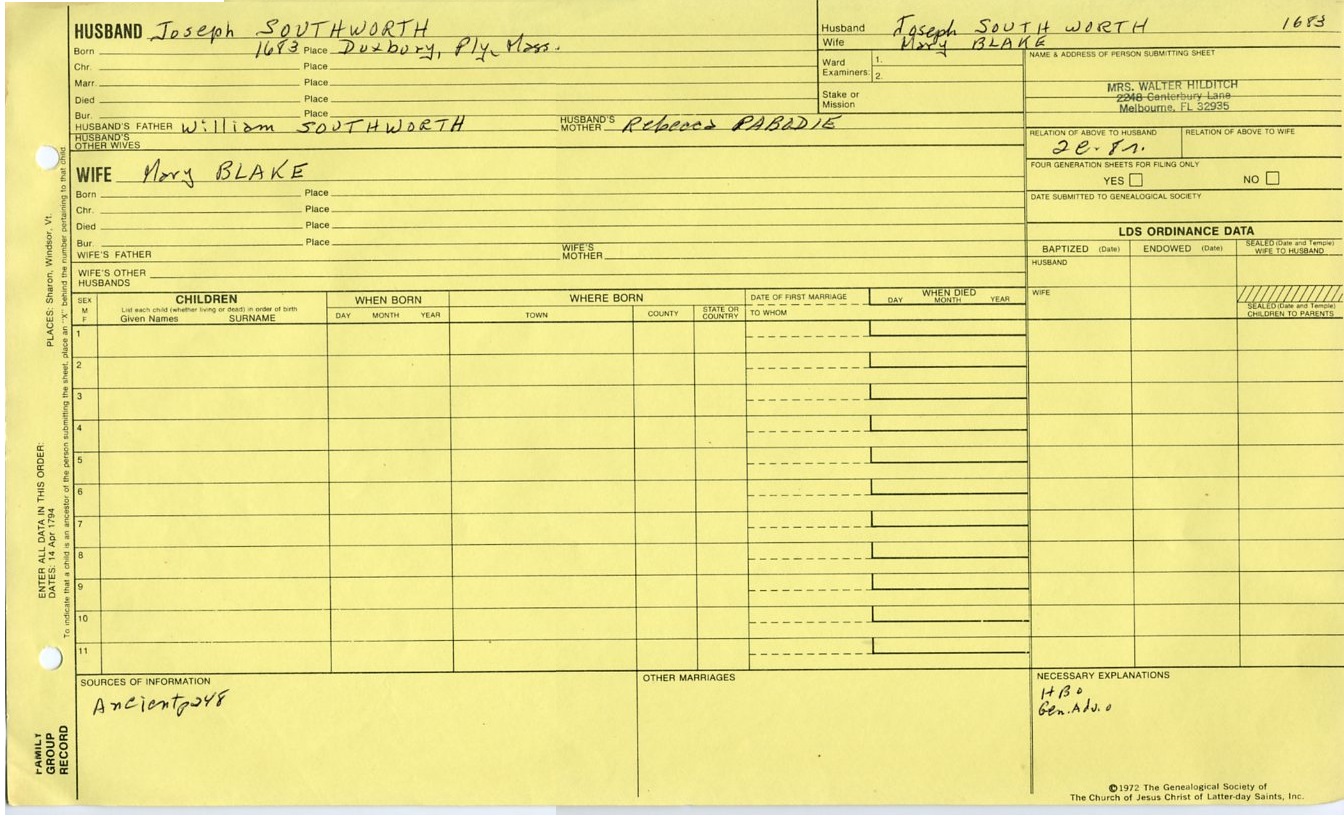 HUSBAND Joseph SOUTHWORTH
Born 1683 Place Duxbury, Ply, Mass.
Chr. Place
Marr. Place
Died Place
Bur. Place
HUSBAND'S FATHER William SOUTHWORTH HUSBAND'S MOTHER Rebecca PABODIE
HUSBAND'S OTHER WIVES
WIFE Mary BLAKE
Born Place
Chr. Place
Died Place
Bur. Place
WIFE'S FATHER WIFE'S MOTHER
WIFE'S OTHER HUSBANDS
Husband Joseph SOUTHWORTH 1683
Wife Mary BLAKE
Ward Examiners: 1.
2.
Stake or Mission
NAME & ADDRESS OF PERSON SUBMITTING SHEET
MRS. WALTER HILDITCH
2248 Canterbury Lane
Melbourne, FL 32935
RELATION OF ABOVE TO HUSBAND RELATION OF ABOVE TO WIFE
FOUR GENERATION SHEETS FOR FILING ONLY
YES NO
DATE SUBMITTED TO GENEALOGICAL SOCIETY
LDS ORDINANCE DATA
BAPTIZED (Date) ENDOWED (Date) SEALED (Date and Temple) WIFE TO HUSBAND
HUSBAND
WIFE
SEALED (Date and Temple) CHILDREN TO PARENTS
SEX M F
CHILDREN
List each child (whether living or dead) in order of birth
Given Names SURNAME
WHEN BORN
DAY MONTH YEAR
WHERE BORN
TOWN COUNTY STATE OR COUNTRY
DATE OF FIRST MARRIAGE
TO WHOM
WHEN DIED
DAY MONTH YEAR
1
2
3
4
5
6
7
8
9
10
11
SOURCES OF INFORMATION
Ancient p248
OTHER MARRIAGES
NECESSARY EXPLANATIONS
HBo
Gen. Adv. o
©1972 The Genealogical Society of
The Church of Jesus Christ of Latter-day Saints, Inc.
PLACES: Sharon, Windsor, Vt.
ENTER ALL DATA IN THIS ORDER:
DATES: 14 Apr 1794
To indicate that a child is an ancestor of the person submitting the sheet, place an "X" behind the number pertaining to that child.
FAMILY
GROUP
RECORD